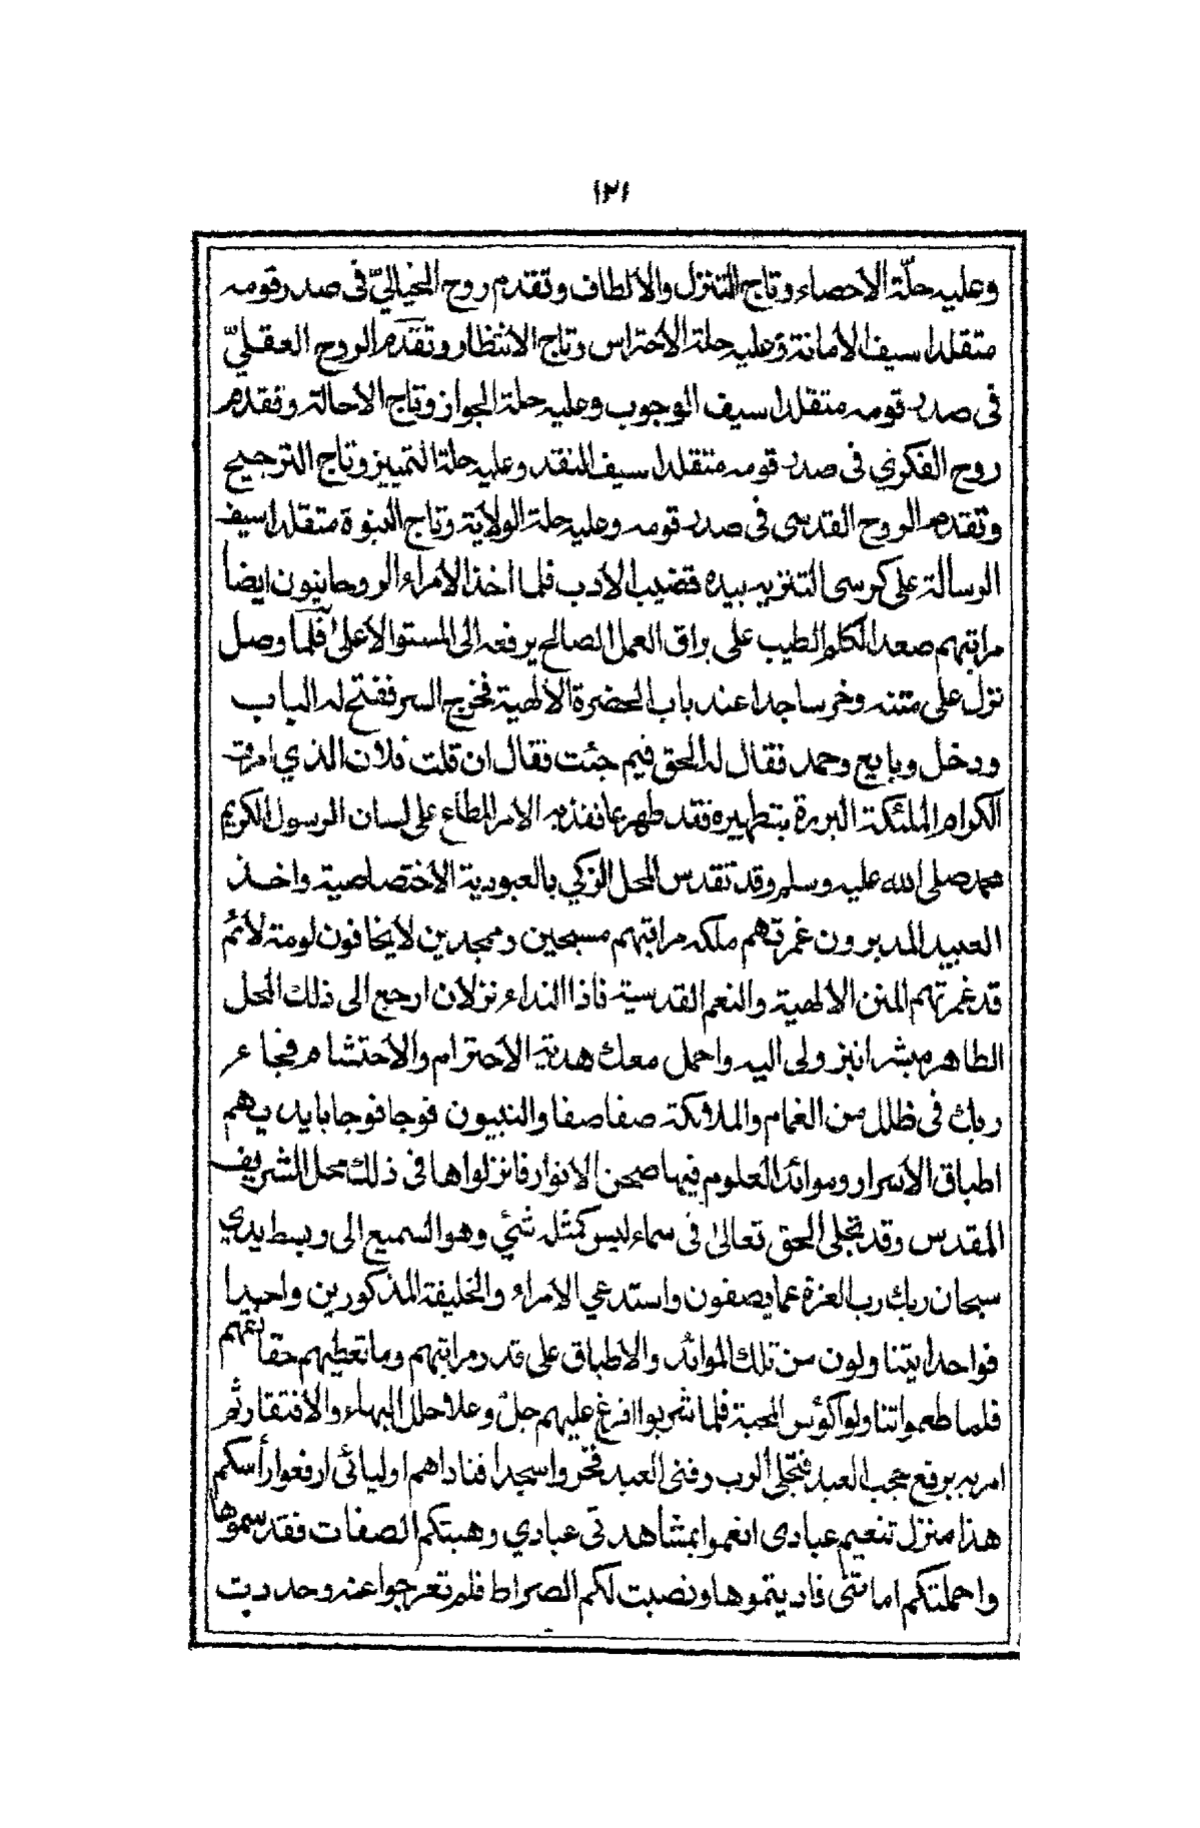 ١٢١
وعليه حلّة الاحصاء وتاج التنزل والالطاف وتقدم روح الخياليّ فى صدر قومه
متقلدا سيف الأمانة وعليه حلة الاحتراس وتاج الانتظار وتقدّم الروح العقليّ
فى صدر قومه متقلدا سيف الوجوب وعليه حلة الجواز وتاج الاحالة وتقدم
روح الفكري فى صدر قومه متقلدا سيف النقد وعليه حلة التمييز وتاج الترجيح
وتقدم الروح القدسى فى صدر قومه وعليه حلة الولاية وتاج النبوة متقلدا سيف
الرسالة على كرسى التنزيه بيده قضيب الادب فلما اخذ الأمراء الروحانيون ايضا
مراتبهم صعد الكلم الطيب على براق العمل الصالح يرفعه الى المستوا الاعلىٰ فلمّا وصل
نزل على متنه وخر ساجدا عند باب الحضرة الالهية فخرج السر ففتح له الباب
ودخل وبايع وحمد فقال له الحق فيم جئت فقال ان قلت فلان الذي امرت
الكرام الملئكة البررة بتطهيره فقد طهر عا نفذ به الامر المطاع على لسان الرسول الكريم
محمد صلى الله عليه وسلم وقد تقدس المحل الزكي بالعبودية الاختصاصية واخذ
العبيد المدبرون غمرتهم ملكه مراتبهم مسبحين وممجدين لايخافون لومة لائم
قد غمرتهم المنن الالهية والنعم القدسية فاذا النداء نزلان ارجع الى ذلك المحل
الطاهر مبشرا بنزولى اليه واحمل معك هدية الاحترام والاحتشام فجاء
ربك فى ظلل من الغمام والملائكة صفا صفا والنبيون فوجا فوجا بايديهم
اطباق الاسرار وموائد العلوم فيها صحن الانوار فانزلواها فى ذلك محل الشريف
المقدس وقد تجلى الحق تعالىٰ فى سماء ليس كمثله شئي وهو السميع الى وبسط يدي
سبحان ربك رب العزة عما يصفون واستدعي الامراء والخليفة المذكورين واحدا
فواحدا يتناولون من تلك الموائد والاطباق على قدر مراتبهم وما تعطيهم حقائقهم
فلما طعموا تناولوا كؤس المحبة فلما شربوا افرغ عليهم جل وعلا حلل البهاء والافتقار ثم
امر به برفع حجب العبد فتجلى الرب وفنى العبد فخروا سجدا فناداهم اوليائى ارفعوا رأسكم
هذا منزل تنعيم عبادى انعموا بمشاهدتى عبادي وهبتكم الصفات فقد سموها
واحملتكم امانتى فاديتموها ونصبت لكم الصراط فلم تعرجوا عنه وحددت